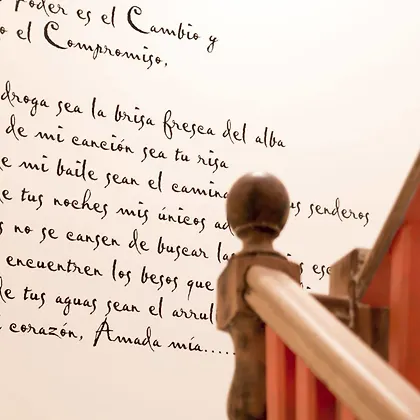 Poder es el Cambio y
o el Compromiso,
droga sea la brisa fresca del alba
de mi canción sea tu risa
e mi baile sean el camina us senderos
e tus noches mis únicos ad
s no se cansen de buscar la s ese
encuentren los besos que
de tus aguas sean el arrul
corazón, Amada mía.....